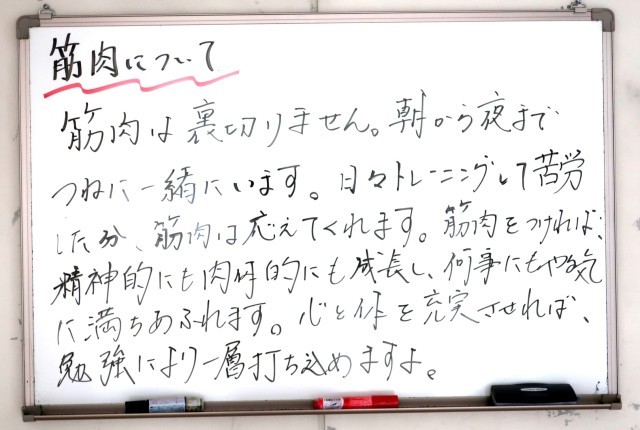 筋肉について
筋肉は裏切りません。朝から夜まで
つねに一緒にいます。日々トレーニングして苦労
した分、筋肉は応えてくれます。筋肉をつければ、
精神的にも肉体的にも成長し、何事にもやる気
に満ちあふれます。心と体を充実させれば、
勉強により一層打ち込めますよ。